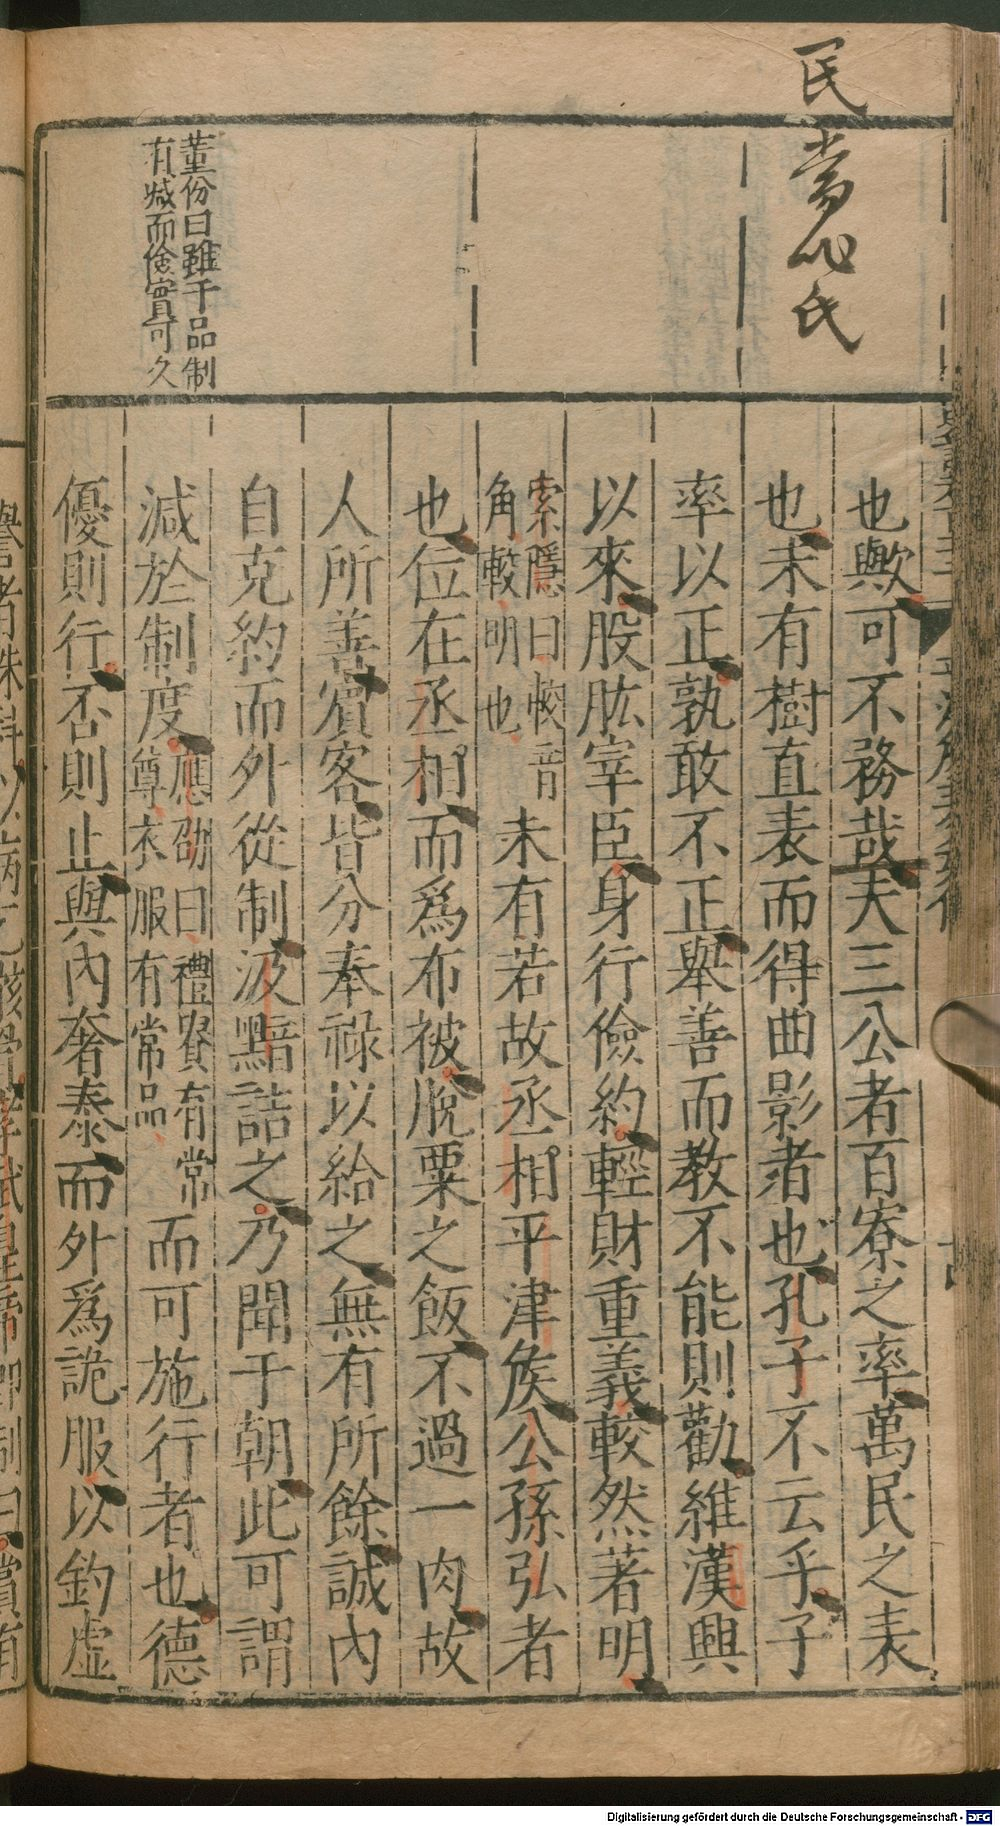 民當作氏
董份曰雖于品制
有減而儉實可久
也歟可不務哉夫三公者百寮之率萬民之表
也未有樹直表而得曲影者也孔子不云乎子
率以正孰敢不正舉善而教不能則勸維漢興
以來股肱宰臣身行儉約輕財重義較然著明
索隱曰較音
角較明也
未有若故丞相平津侯公孫弘者
也位在丞相而爲布被脫粟之飯不過一肉故
人所善賓客皆分奉祿以給之無有所餘誠內
自克約而外從制汲黯詰之乃聞于朝此可謂
減於制度
應劭曰禮貴有常
尊衣服有常品
而可施行者也德
優則行否則止與內奢泰而外爲詭服以釣虛
Digitalisierung gefördert durch die Deutsche Forschungsgemeinschaft - DFG